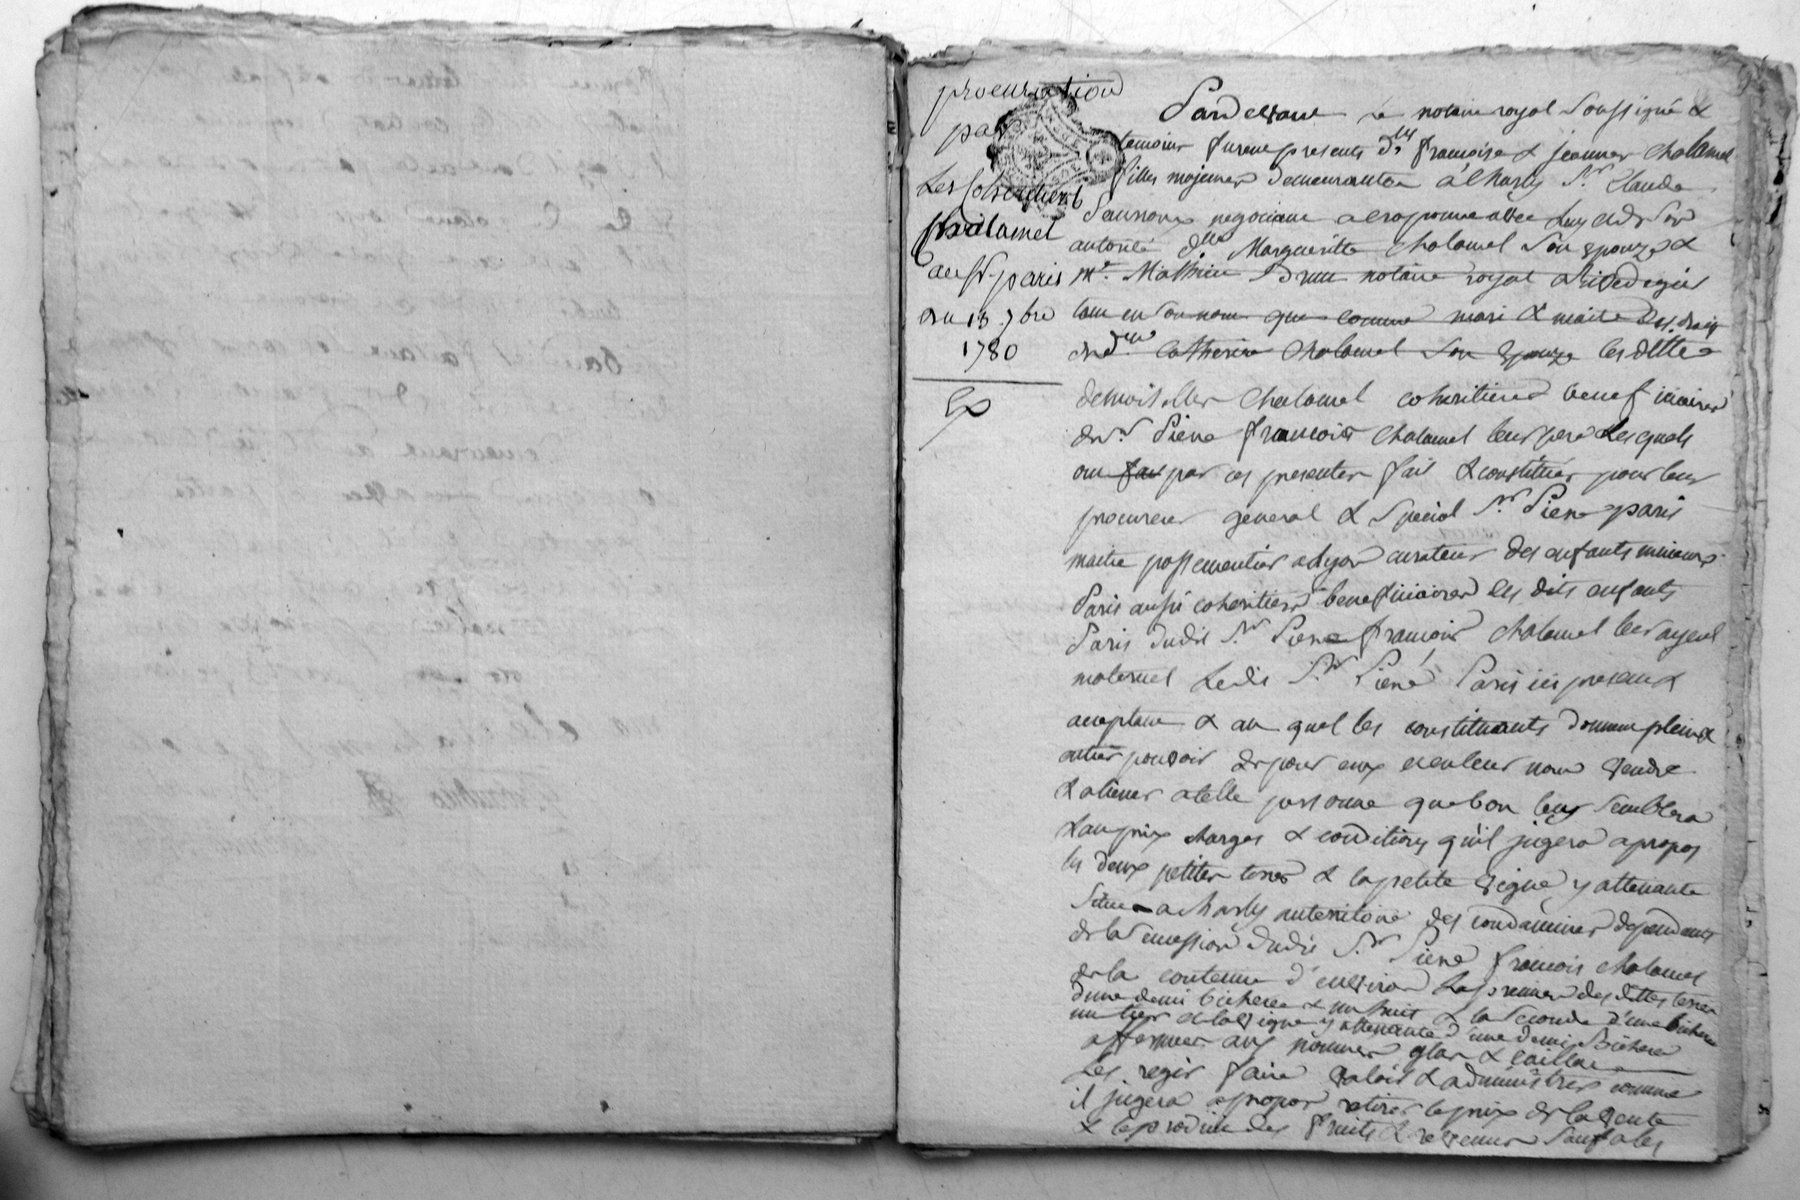 procuration
par
Les Cohéritiers
Chalamel
au Sr paris
du 13 7bre
1780
Ex
Pardevant le notaire royal soussigné &
temoins furent presents dlles françoise & jeanne Chalamel
filles majeures demeurantes à Charly Sr Claude
negociant avec luy & de son
autorité dlle Margueritte Chalamel son epouze &
me Mathieu Brun notaire royal a Rivedegier
tant en son nom que comme mari & maitre des droits
de dlle Catherine Chalamel son epouze les dittes
demoiselles Chalamel coheritieres beneficiaires
de sr Pierre françois Chalamel leur pere Lesquels
ont par ces presentes fait & constitué pour leur
procureur general & special Sr Pierre paris
maitre passementier a Lyon curateur des enfants mineurs
Paris aussi coheritiers beneficiaires les dits enfants
Paris dudit Sr Pierre françois Chalamel leur ayeul
maternel Ledit Sr Pierre Paris ici present &
acceptant & au quel les constituants donnent plein &
entier pouvoir de pour eux & en leur nom vendre
& aliener a telle personne que bon leur semblera
& aux prix charges & conditions qu'il jugera apropos
les deux petites terres & la petite vigne y attenante
situé a Charly au territoire des condamines dependants
de la succession dudit Sr Pierre françois Chalamel
de la contenue d'environ La premiere des dittes terres
d'une demi bicherée & un huit & la seconde d'une bicherée
un tier & la vigne y attenante d'une demi Bicherée
affermer aux nommés glas &
Les regir faire valoir & administrer comme
il jugera apropos retirer le prix de la vente
& le produit des fruits & revenus sauf a les